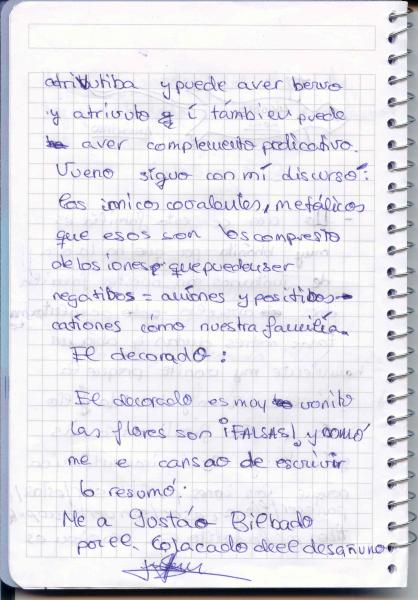 atributiba y puede aver bervo
y atrivuto y í támbieu puede
aver complemento predicativo.
Vueno síguo con mí discursó:
las ionicos covalentes, metálicos
que esos son los compuesto
de los iones y que pueden ser
negatibos = aniones y positibos
cationes cómo nuestra famílía.
El decorado:
El decorado es muy vonito
las flores son ¡FALSAS! y cómó
me e cansao de escrivir
lo resumó:
Me a gustáo Bilbado
por el, Cojacado deel desañuno